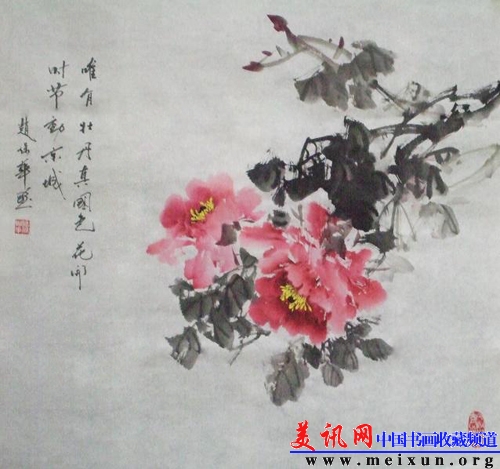 唯有牡丹真國色花開
时节動京城
美讯网中国书画收藏频道
www.meixun.org